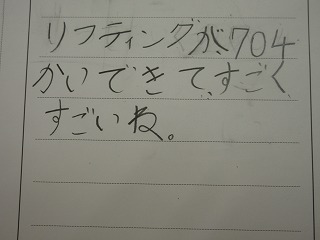 リフティングが、704
かいできて、すごく、
すごいね。